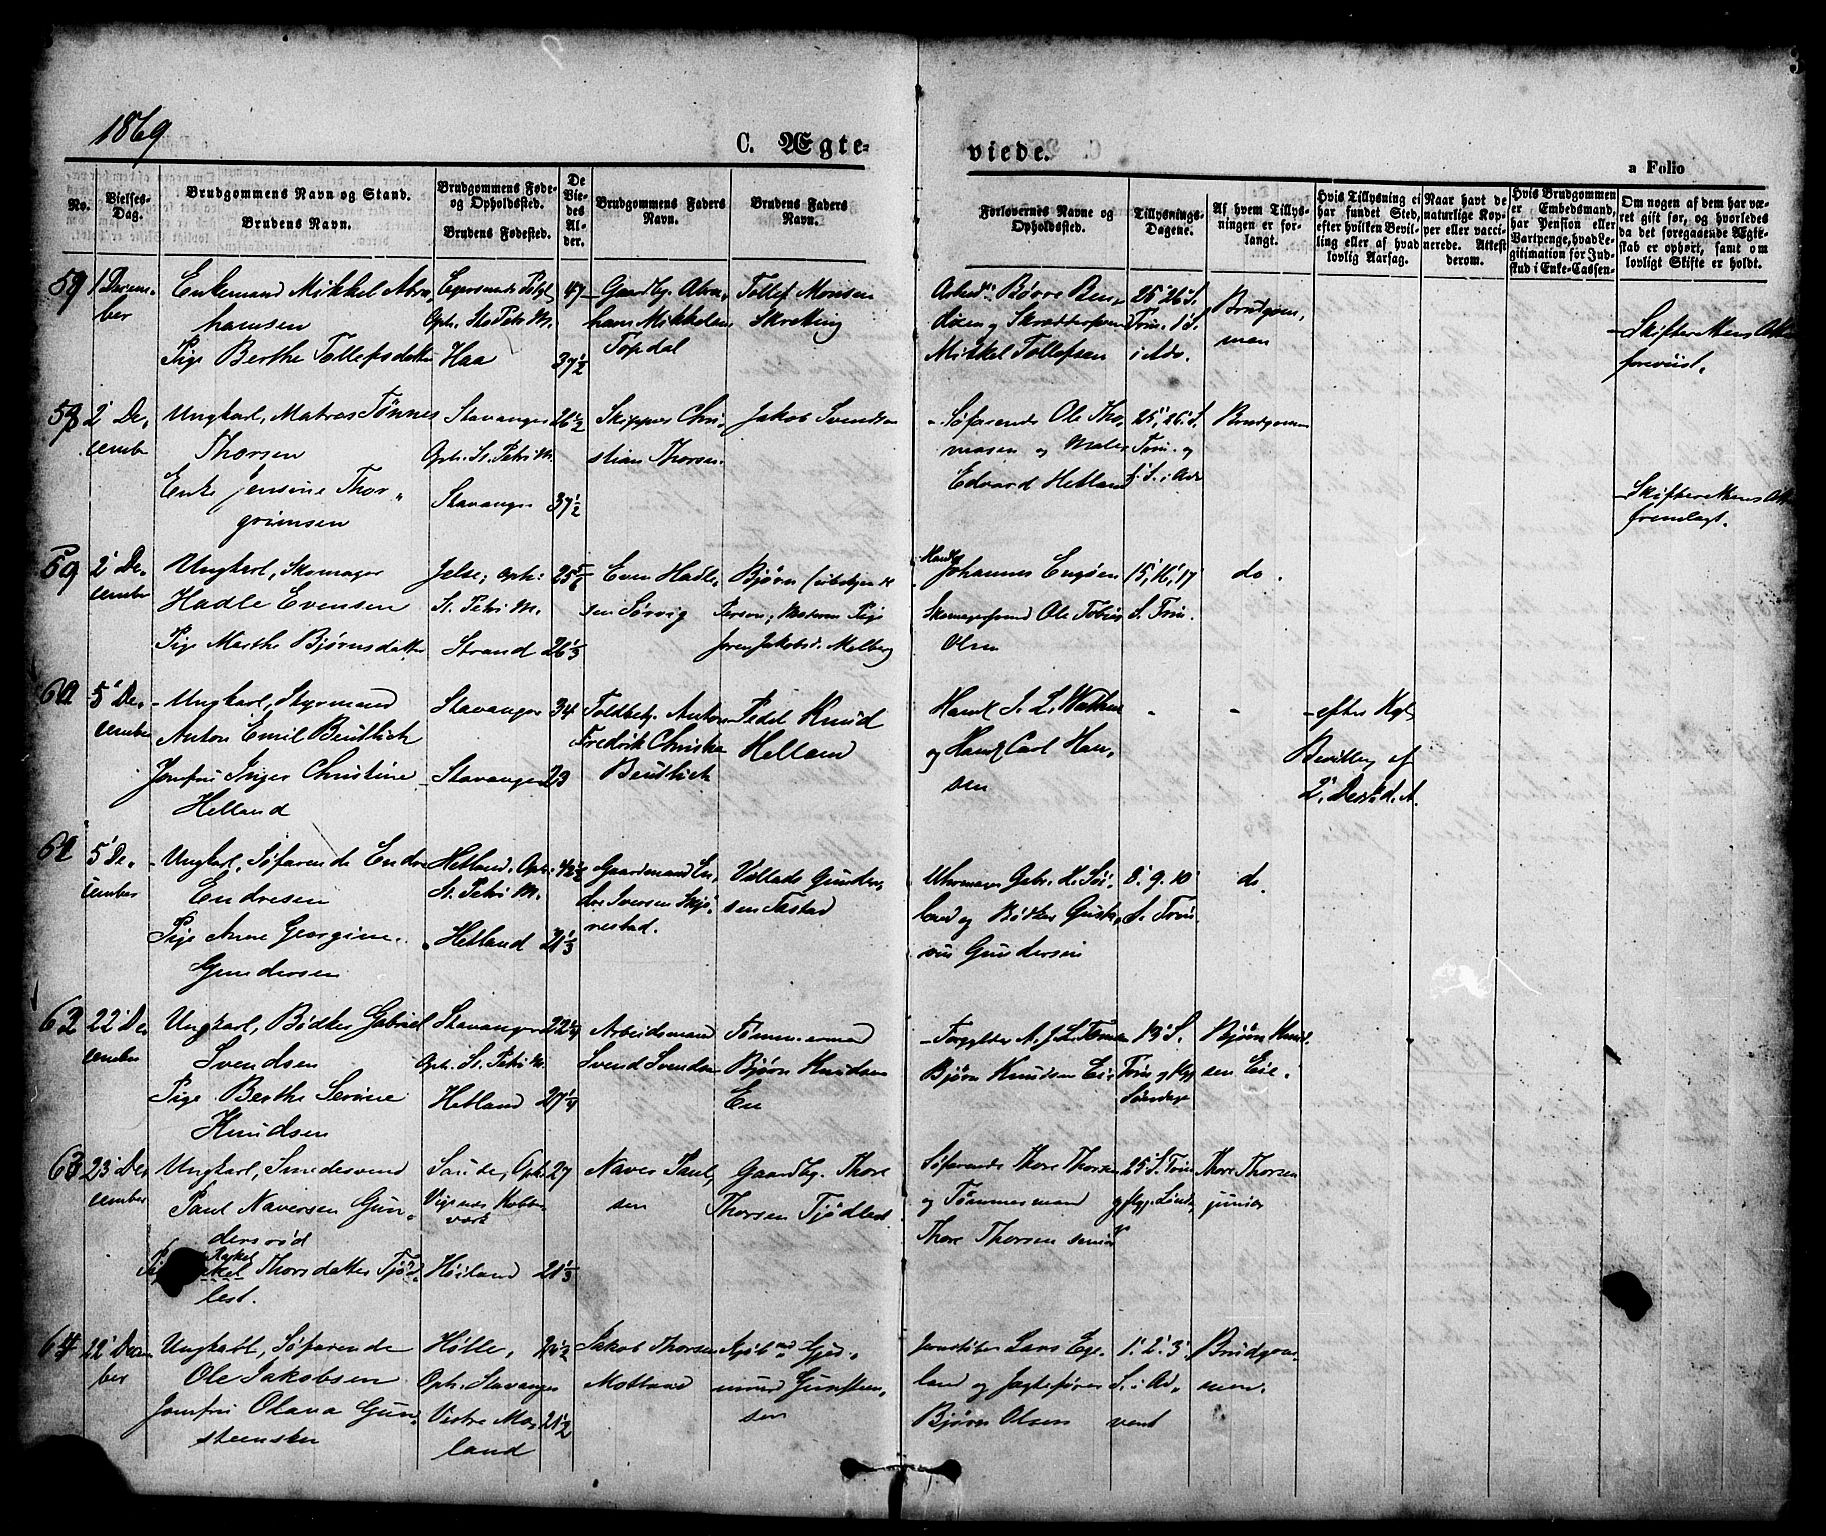 1869
C. Ægte-
viede.
a Folio
No.
Vielses-Dag.
Brudgommens Navn og Stand.
Brudens Navn.
Brudgommens Føde- og Opholdssted.
Brudens Fødested.
De Viedes Alder.
Brudgommens Faders Navn.
Brudens Faders Navn.
Forlovernes Navne og Opholdssted.
Tillysnings-Dagene.
Af hvem Tillysningen er forlangt.
Hvis Tillysning ei har fundet Sted, efter hvilken Bevilling eller af hvad lovlig Aarsag.
Naar havt de naturlige Kopper eller vaccinerede. Attest derom.
Hvis Brudgommen er Embedsmand, har Pension eller Vartpenge, hvad Legitimation for Indskud i Enke-Cassen.
Om nogen af dem har været gift før, og hvorledes da det foregaaende Ægteskab er ophørt, samt om lovligt Skifte er holdt.
1 Decem-
ber
Enkemand Mikkel Abra-
hamsen
Pige Berthe Tollefsdatter
Oph. St. Petri M.
Haa
47
37 1/2
Gaardbr. Abra-
ham Mikkelsen
Topdal
Tollef Monsen
Skretting
Mikkel Tollefsen
25' 26' S.
Trin. 1' S.
i Adv.
Brudgom-
men
Skifterettens Att.
foreviist.
2' De-
cember
Ungkarl, Matros Tønnes
Thorsen
Enke Jensine Thor-
grimsen
Stavanger
Oph. St. Petri M.
Stavanger
26 1/2
37 1/2
Skipper Chri-
stian Thorsen
Jakob Svendsen
Søfarende Ole Tho-
masen og Maler
Edvard Hetland
25', 26' S.
Trin. og
1' S. i Adv.
Brudgommen
Skifterettens Att.
fremlagt.
59
2' De-
cember
Ungkarl, Skomager
Hadle Evensen
Pige Marthe Bjørnsdatter
Jelse, Oph:
St. Petri M.
Strand
25
26 1/3
Even Hadle-
sen Sørvig
Bjørn (ubekjendt
Person, Moderen Pige
Jakobsd. Melberg
Johannes Engøen
Skomagersvend Ole Tobias
Olsen
15, 16, 17
S. Trin.
do.
5' De-
cember
Ungkarl, Styrmand
Anton Emil Beutlich
Jomfru Inger Christine
Helland
Stavanger
Stavanger
34
23
Toldbetj. Anton
Fredrik Christian
Beutlich
Pedel Knud
Helland
og Carl Han-
sen
-
-
efter Kgl.
Bevilling af
2' Decbr. d. A.
5' De-
cember
Ungkarl, Søfarende Endre
Endresen
Pige Anne Georgine
Gundersen
Hetland, Oph:
St. Petri M.
Hetland
21 1/3
Gaardmand En-
dre Iversen Skjø-
restad.
Villads Gunder-
sen Tastad
Uhrmager Gabr. K. Søi-
land og Bødker Gust-
av Gundersen
8' 9' 10'
S. Trin.
do.
62
22' De-
cember
Ungkarl, Bødker Gabriel
Svendsen
Pige Berthe Serine
Knudsen
Stavanger
Oph. St. Petri M.
Hetland
22 1/4
27 1/4
Arbeidsmand
Svend Svendsen
Tømmermand
Bjørn Knudsen
Eie
Bjørn Knudsen Eie
13' S.
Trin og flg.
Søndage
Bjørn Knud-
sen Eie.
63
23' De-
cember
Ungkarl, Smedesvend
Paul Naversen Gun-
dersrød
Rakel
Thorsdatter Tjød-
lest.
Saude, Oph.
Vigsnes Kobber
værk
Høiland
27
21 1/3
Naver Paul-
sen
Gaardbr. Thore
Thorsen Tjødlest
Søfarende Thore Thorsen
og Tømmermand
Thore Thorsen senior
25' S. Trin
og flg. Sønd.
Thore Thorsen
junior
64
22' Decem-
ber
Ungkarl, Søfarende
Ole Jakobsen
Jomfru Olava Gun-
steensen
Høtte,
Oph. Stavanger
Vestre Mo-
land
21 1/2
Jakob Thorsen
Motland
Gun-
mund Gunsteen-
sen
Lars Ege-
land og Jagtefører
Bjørn Olsen
1' 2' 3'
S. i Ad-
vent
Brudgom-
men.